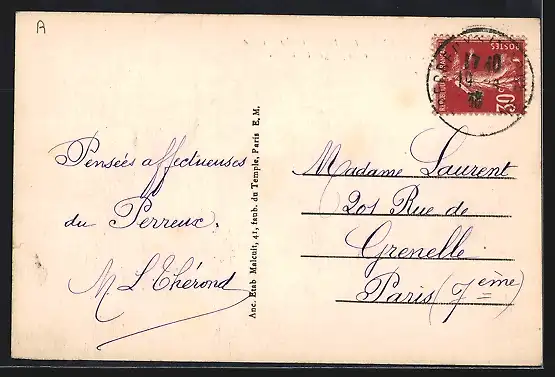 A
Pensées affectueuses
du Perreux.
M L Thérond
Anc. Etab Malcuit, 41, faub. du Temple, Paris E. M.
POSTES
30c
17 10
Madame Laurent
201 Rue de
Grenelle
Paris (7ème)